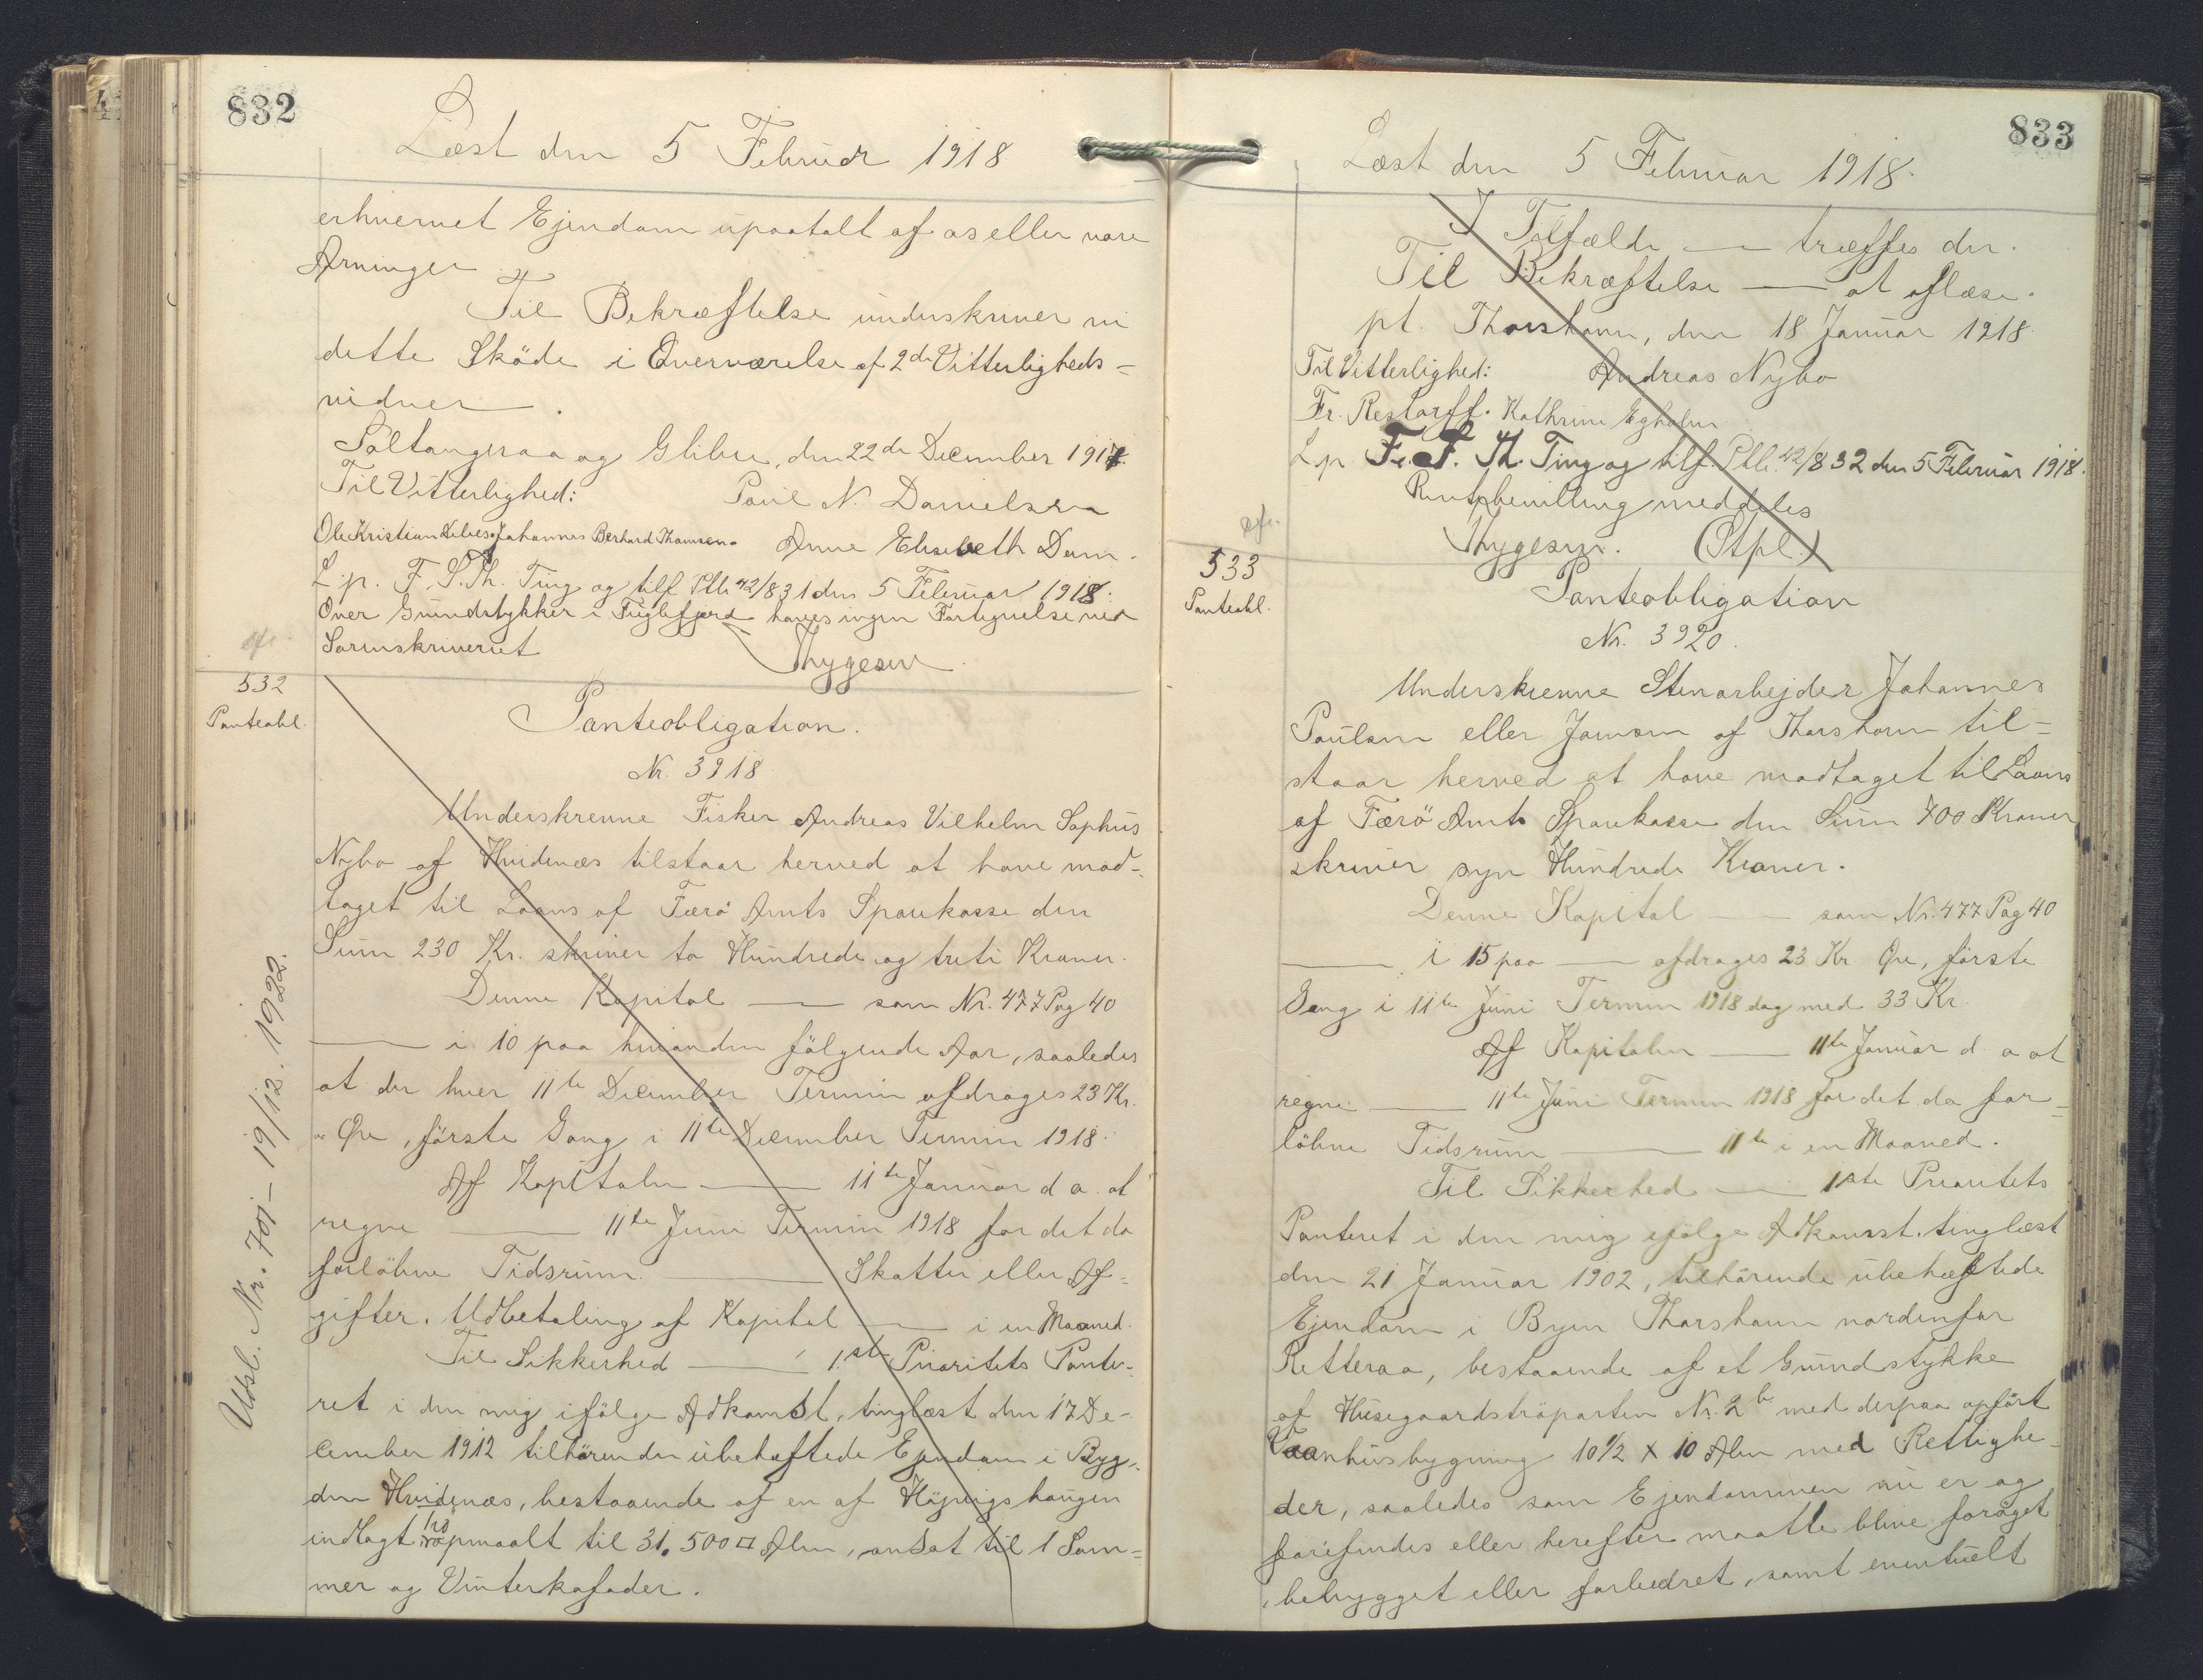 832
Læst den 5 Februar 1918
erhvervet Ejendom upaatalt af os eller vore
Arvinger
Til Bekræftelse underskriver vi
dette Sköde i Overværelse af 2de Vitterligheds=
vidner.
Saltangeraa og Glibre, den 22de December 1917.
Til Vitterlighed: Poul N. Danielsen
Ole Kristian Johannes Berhard Thomsen. Anne Elisabeth Dam.
L.p. F. S. Th. Ting og tilf Ptb 42/831 den 5 Februar 1918.
Over Grundstykker i Fuglefjord haves ingen Fortegnelse ved
Sorenskriveriet Thygesen
cfr.
532
Panteobl.
Panteobligation.
Nr. 3918
Underskrevne Fisker Andreas Vilhelm Sophus
Nybo af Hvidenæs tilstaar herved at have mod=
taget til Laans af Færö Amts Sparekasse den
Sum 230 Kr. skriver to Hundrede og treti Kroner.
Denne Kapital — som Nr. 477 Pag 40
— i 10 paa hinanden fölgende Aar, saaledes
at der hver 11te December Termin afdrages 23 Kr.
" Øre, förste Gang i 11te December Termin 1918.
Af Kapitalen — 11te Januar d a. at
regne — 11te Juni Termin 1918 for det da
forlöbne Tidsrum — Skatter eller Af=
gifter. Udbetaling af Kapital — i en Maaned.
Til Sikkerhed — 1ste Prioritets Pante=
ret i den mig ifölge Adkomst, tinglæst den 17 De=
cember 1912 tilhörende ubehæftede Ejendom i Byg=
den Hvidenæs, bestaaende af en af Höjvigshaugen
indtagt Trö opmaalt til 31.500 □ Alen, ansat til 1 Som=
mer og Vinterkofoder.
Udsl. Nr. 701 – 19/12. 1922.
833
Læst den 5 Februar 1918.
I Tilfælde — træffes der.
Til Bekræftelse — at aflæse.
pt. Thorshavn, den 18 Januar 1918.
Til Vitterlighed: Andreas Nybo
Fr. Restorff. Kathrine Egholm
L.p F. S. Th. Ting og tilf. Ptb. 42/832 den 5 Februar 1918.
Rentebevilling meddeles
Thygesen. (Stpl.)
cfr.
533
Panteobl.
Panteobligation
Nr. 3920.
Underskrevne Stenarbejder Johannes
Poulsen eller Joensen af Thorshavn til=
staar herved at have modtaget til Laans
af Færö Amts Sparekasse den Sum 700 Kroner
skriver syv Hundrede Kroner.
Denne Kapital — som Nr. 477 Pag 40
— i 15 paa — afdrages 23 Kr Øre, förste
Gang i 11te Juni Termin 1918 dog med 33 Kr.
Af Kapitalen — 11te Januar d. a at
regne — 11te Juni Termin 1918 for det da for=
löbne Tidsrum — 11te i en Maaned.
Til Sikkerhed — 1ste Prioritets
Panteret i den mig ifölge Adkomst. tinglæst
den 21 Januar 1902, tilhörende ubehæftede
Ejendom i Byen Thorshavn nordenfor
Retteraa, bestaaende af et Grundstykke
af Husegaardströparten Nr. 2b med derpaa opfört
Vaanhusbygning 10½ x 10 Alen med Rettighe=
der, saaledes som Ejendommen nu er og
forefindes eller herefter maatte blive foröget
bebygget eller forbedret, samt eventuelt